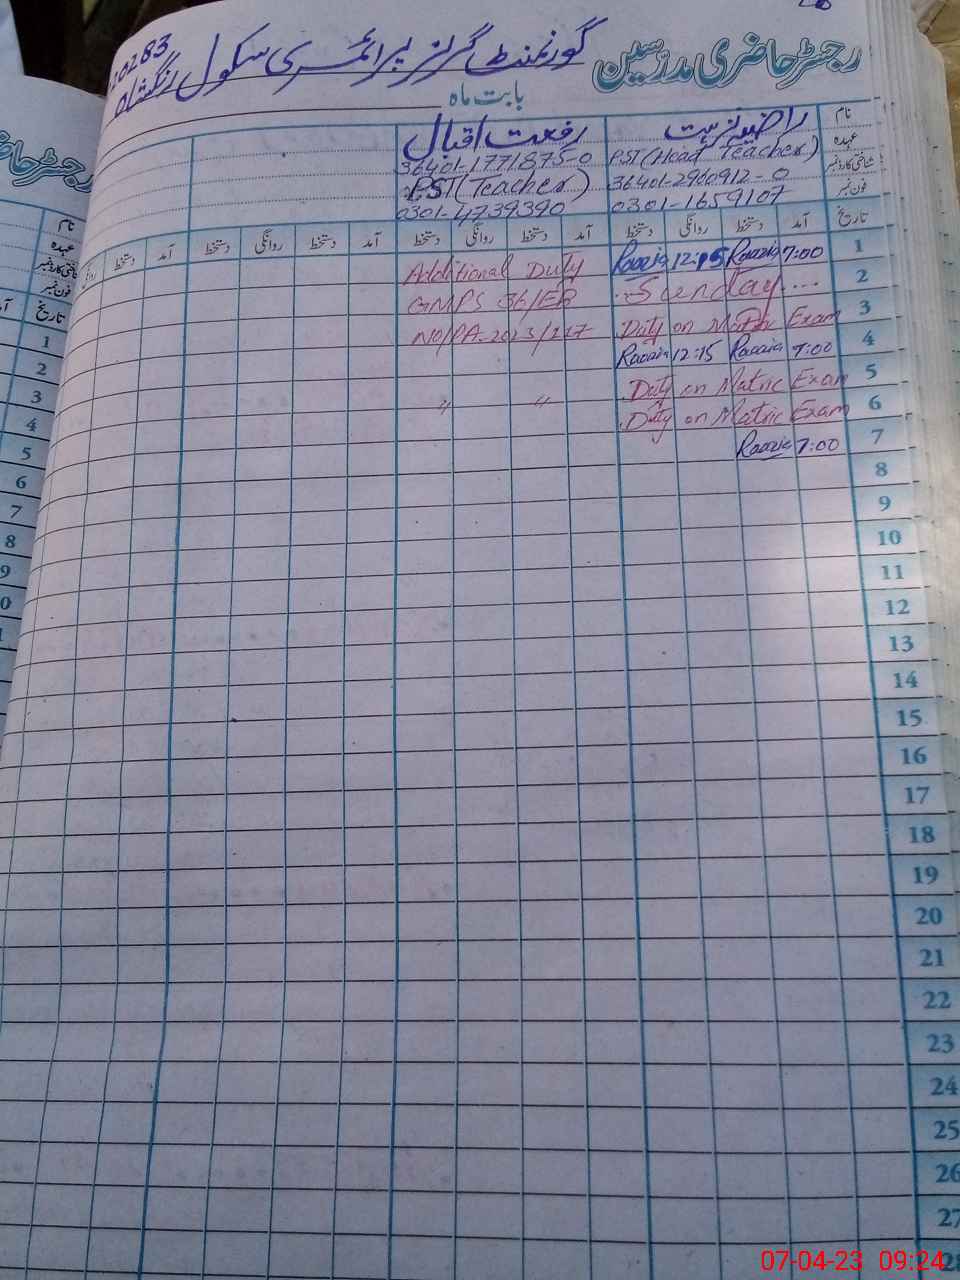 رجسٹر حاضری مدرسین
گورنمنٹ گرلز پرائمری سکول
بابت ماہ
نام
عہدہ
شناختی کارڈ نمبر
فون نمبر
رفعت اقبال
36401-1771875-0 PST (Head Teacher)
PST (Teacher) 36401-2900912-0
0301-4739390 0301-1659107
تاریخ آمد دستخط روانگی دستخط آمد دستخط روانگی دستخط آمد دستخط روانگی دستخط آمد دستخط
Additional Duty Raazia 12:15 Raazia 7:00 1
GMPS 36/EB ..Sunday.... 2
NO/PA-2023/117 Duty on Matric Exam 3
Raazia 12:15 Raazia 7:00 4
Duty on Matric Exam 5
" " Duty on Matric Exam 6
Raazia 7:00 7
8
9
10
11
12
13
14
15
16
17
18
19
20
21
22
23
24
25
26
27
28
نام
عہدہ
شناختی کارڈ نمبر
فون نمبر
تاریخ
1
2
3
4
5
6
7
8
9
07-04-23 09:24